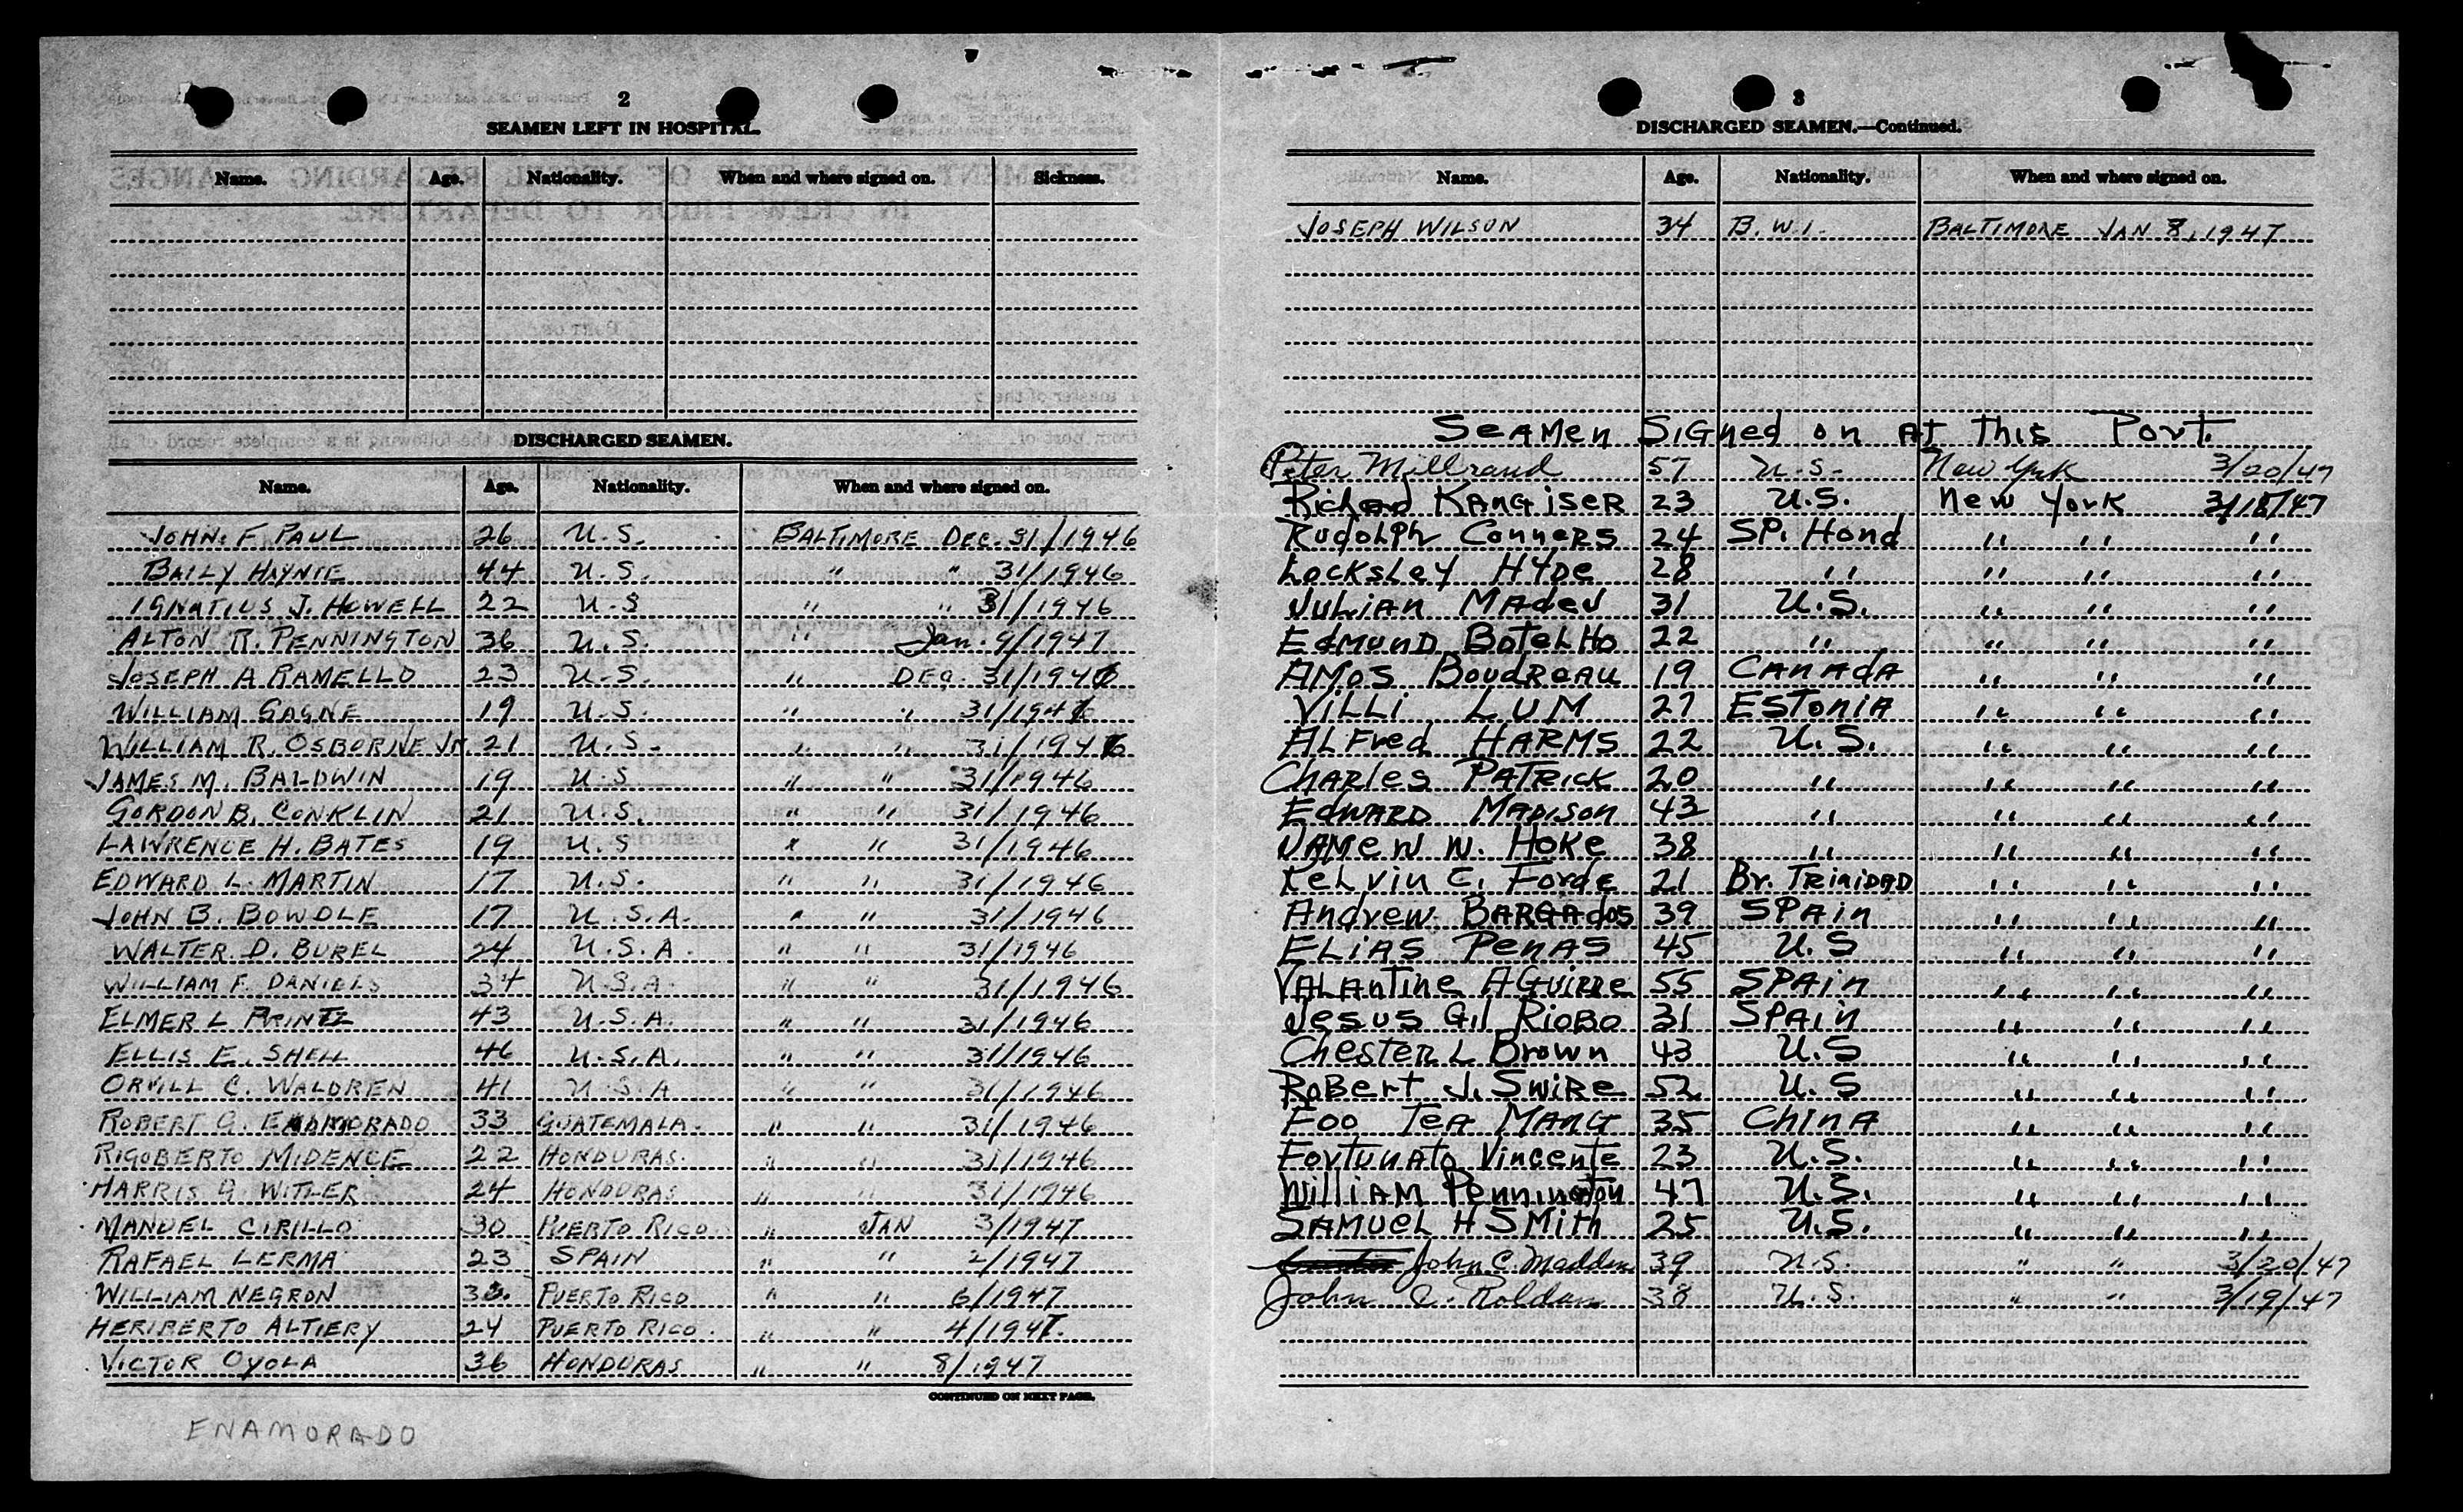 2
SEAMEN LEFT IN HOSPITAL.
Name. Age. Nationality. When and where signed on. Sickness.
DISCHARGED SEAMEN.
Name. Age. Nationality. When and where signed on.
JOHN F PAUL 26 U.S. BALTIMORE DEC. 31/1946
BAILY HAYNIE 44 U.S. " " 31/1946
IGNATIUS J. HOWELL 22 U.S " " 31/1946
ALTON R. PENNINGTON 36 U.S. " Jan. 9/1947
JOSEPH A RAMELLO 23 U.S. " DEC. 31/1946
WILLIAM GAGNE 19 U.S. " " 31/1946
WILLIAM R. OSBORNE JR. 21 U.S. " " 31/1946
JAMES M. BALDWIN 19 U.S " " 31/1946
GORDON B. CONKLIN 21 U.S. " " 31/1946
LAWRENCE H. BATES 19 U.S " " 31/1946
EDWARD L. MARTIN 17 U.S. " " 31/1946
JOHN B. BOWDLE 17 U.S.A. " " 31/1946
WALTER D. BUREL 24 U.S.A. " " 31/1946
WILLIAM F. DANIELS 34 U.S.A. " " 31/1946
ELMER L PRINTZ 43 U.S.A. " " 31/1946
ELLIS E. SHELL 46 U.S.A. " " 31/1946
ORVILL C. WALDREN 41 U.S.A " " 31/1946
ROBERT G. 33 GUATEMALA. " " 31/1946
RIGOBERTO MIDENCE 22 HONDURAS. " " 31/1946
HARRIS G. WITLER 24 HONDURAS " " 31/1946
MANUEL CIRILLO 30 PUERTO RICO " JAN 3/1947
RAFAEL LERMA 23 SPAIN " " 2/1947
WILLIAM NEGRON PUERTO RICO " " 6/1947
HERIBERTO ALTIERY 24 PUERTO RICO. " " 4/1947.
VICTOR OYOLA 36 HONDURAS " " 8/1947
CONTINUED ON NEXT PAGE.
ENAMORADO
3
DISCHARGED SEAMEN.—Continued.
Name. Age. Nationality. When and where signed on.
JOSEPH WILSON 34 B.W.I. BALTIMORE JAN 8, 1947
Seamen Signed on at this Port.
Peter Millrand 57 U.S. New York 3/20/47
Richard Kangiser 23 U.S. New York 3/18/47
Rudolph Conners 24 SP. Hond " " "
Locksley Hyde 28 " " " "
Julian Madew 31 U.S. " " "
Edmund Botelho 22 " " " "
Amos Boudreau 19 Canada " " "
Villi Lum 27 Estonia " " "
Alfred Harms 22 U.S. " " "
Charles Patrick 20 " " " "
Edward Madison 43 " " " "
Jamew W. Hoke 38 " " " "
Kelvin C. Forde 21 Br. Trinidad " " "
Andrew Bargados 39 Spain " " "
Elias Penas 45 U.S " " "
Valantine Aguirre 55 Spain " " "
Jesus Gil Riobo 31 Spain " " "
Chester L Brown 43 U.S " " "
Robert J. Swire 52 U.S " " "
Foo Tea Mang 35 China " " "
Fortunato Vincente 23 U.S. " " "
William Pennington 47 U.S. " " "
Samuel H Smith 25 U.S. " " "
John C. Madden 39 U.S. " " 3/20/47
John C. Roldan 38 U.S. " " 3/19/47